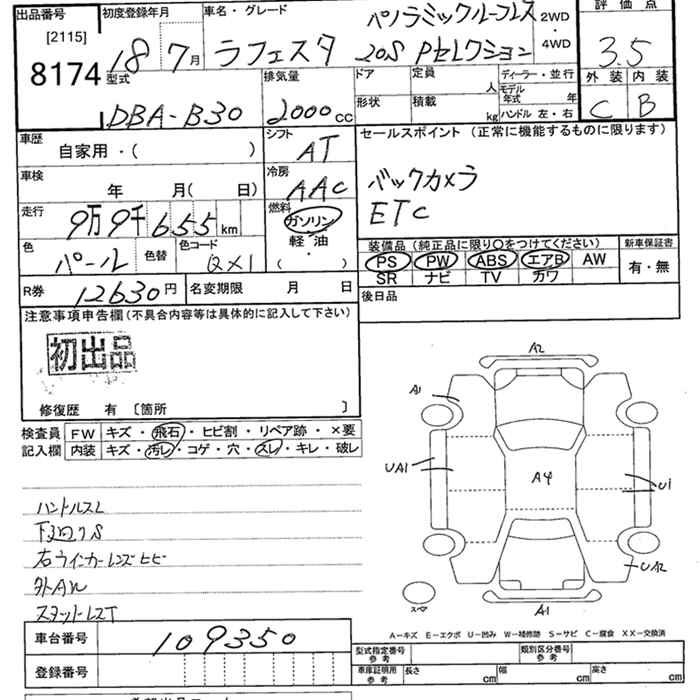 出品番号 初度登録年月 車名・グレード パノラミックルーフレス 2WD 評価点
[2115] 18 7月 ラフェスタ 20S Pセレクション ・4WD 3.5
8174 型式 排気量 ドア 定員 人 ディーラー・並行 外装 内装
モデル年式 年
DBA-B30 2000cc 形状 積載 kg ハンドル 左・右 C B
車歴 シフト セールスポイント (正常に機能するものに限ります)
自家用・( ) AT
車検 冷房 バックカメラ
年 月( 日) AAC ETC
走行 燃料
9万9千655km ガソリン
色 色替 色コード 軽油 装備品 (純正品に限り○をつけてください) 新車保証書
パール QX1 ・( ) PS PW ABS エアB AW 有・無
SR ナビ TV カワ
R券 12630円 名変期限 月 日 後日品
注意事項申告欄(不具合内容等は具体的に記入して下さい)
初出品
修復歴 有 〔箇所 〕
検査員 FW キズ・飛石・ヒビ割・リペア跡・×要
記入欄 内装 キズ・汚レ・コゲ・穴・スレ・キレ・破レ
A2
A1
UA1 A4 U1
UA2
A1
スペア
ハンドルスレ
下廻りS
右ウインカーレンズヒビ
外AW
スタットレスT
A−キズ E−エクボ U−凹み W−補修跡 S−サビ C−腐食 XX−交換済
車台番号 109350 型式指定番号 参考 類別区分番号 参考
登録番号 車庫証明用 参考 長さ cm 幅 cm 高さ cm